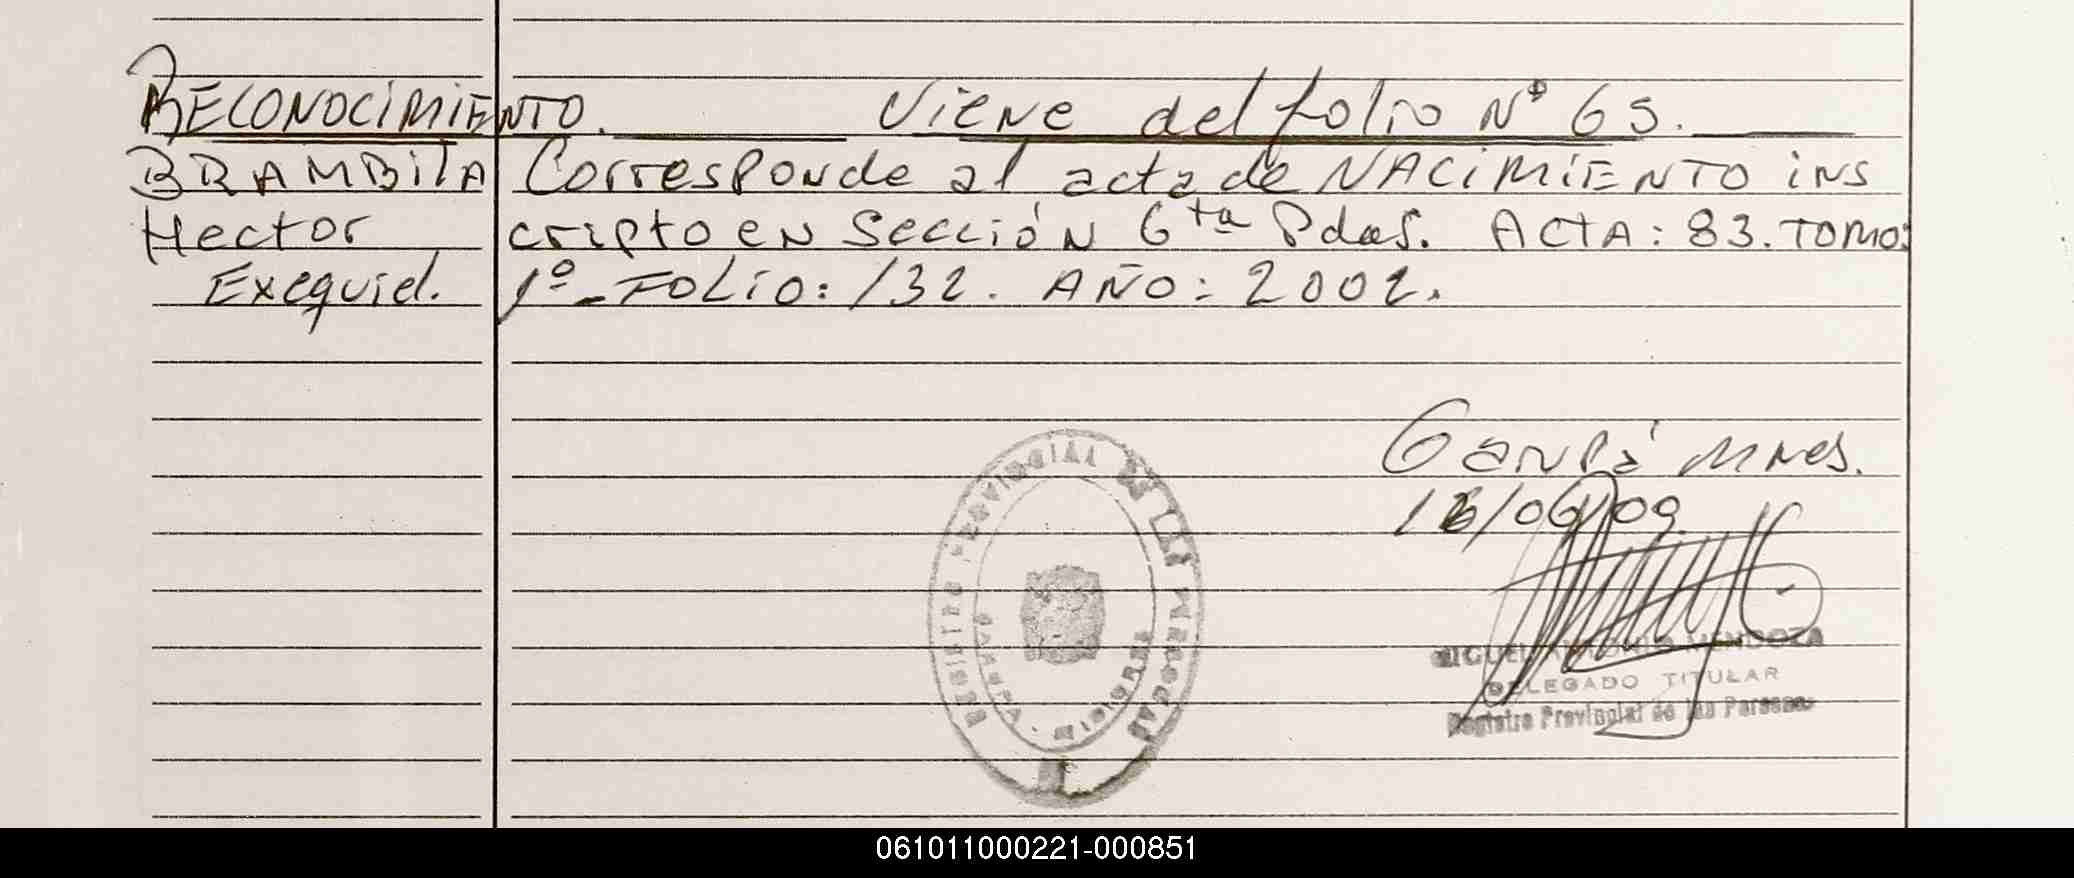 RECONOCIMIENTO. Viene del folio Nº 65.
BRAMBILA Corresponde al acta de NACIMIENTO ins
Hector cripto en Sección 6ta Pdas. ACTA: 83. TOMO:
Exequiel. 1º - FOLIO: 132. AÑO: 2002.
Mnes.
/06/09
REGISTRO PROVINCIAL DE LAS PERSONAS
MIGUEL ANTONIO MENDOZA
DELEGADO TITULAR
Registro Provincial de las Personas
061011000221-000851